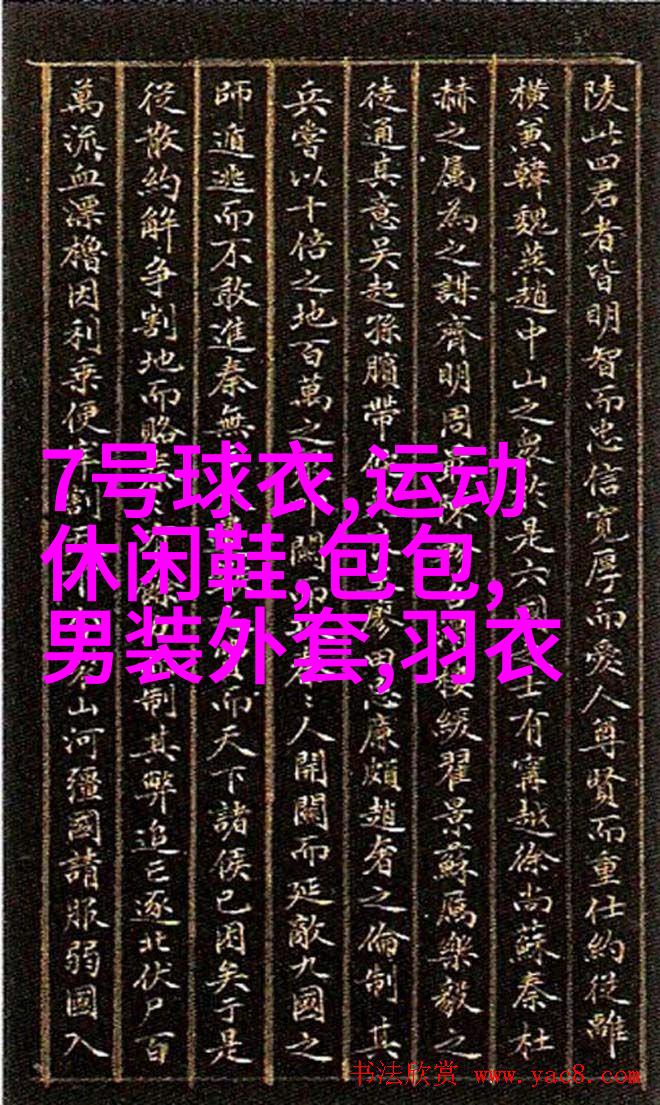 陵此四君者皆明智而忠信寬厚而愛人尊賢而重仕約從離
橫兼韓魏燕趙中山之衆於是六國士有甯越徐尚蘇秦杜
赫之屬為之謀齊明周緩翟景蘇厲樂毅之
徒通其意吳起孫臏帶廖田忌廉頗趙奢之倫制其
兵嘗以十倍之地百萬之關人開關而延敵九國之
師遁逃而不敢進秦無而天下諸侯已困矣于是
從散約解爭割地而賂制其弊追亡逐北伏尸百
萬流血漂櫓因利乘便割山河彊國請服弱國入
7号球衣,运动
休闲鞋,包包,
男装外套,羽衣
书法欣赏 www.yac8.com